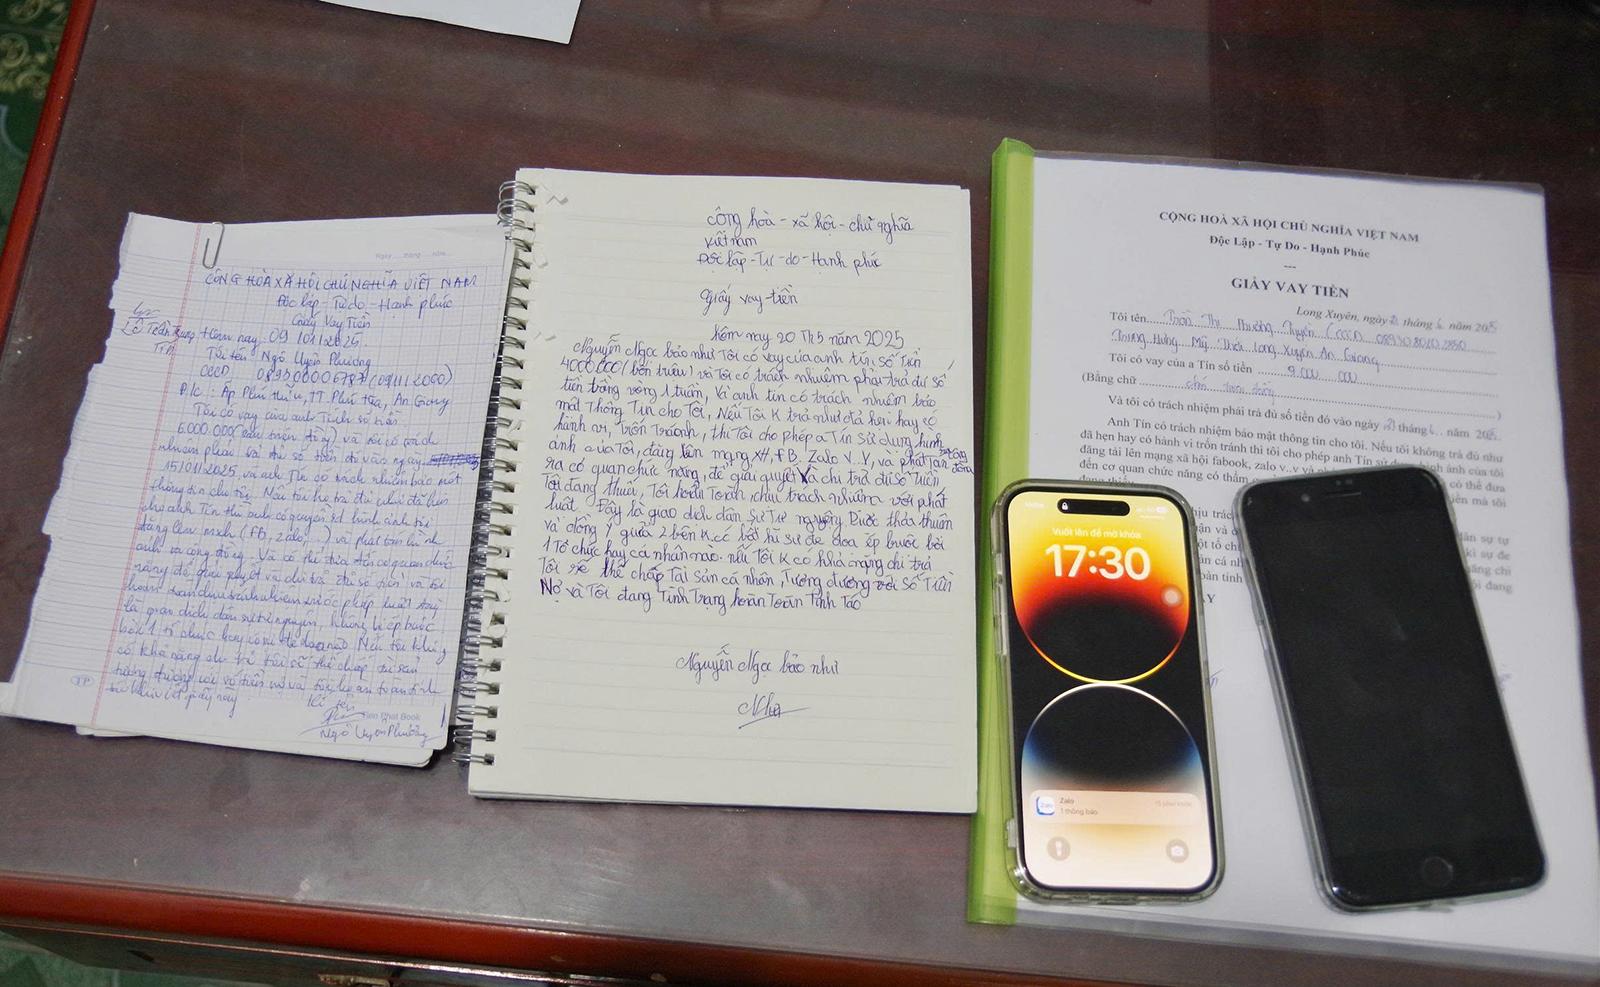 Ngày tháng năm
CÔNG HOÀ XÃ HỘI CHỦ NGHĨA VIỆT NAM
Độc lập - Tự do - Hạnh phúc
Giấy Vay Tiền
Hôm nay: 09/01/2025.
Tôi tên: Ngô Uyên Phương
CCCD
Đ/c: Ấp Phú Hữu, TT. Phú Hòa, An Giang
Tôi có vay của anh Tính số tiền
6.000.000 (sáu triệu đồng) và tôi có trách
nhiệm phải trả đủ số tiền đó vào ngày
15/01/2025, và anh Tín có trách nhiệm bảo mật
thông tin cho tôi. Nếu tôi
cho anh Tín thì anh có quyền sd hình ảnh tôi
đăng lên mxh (FB, Zalo...) và phát tán hình
ảnh ra cộng đồng. Và có thể đưa đến cơ quan chức
năng để giải quyết và chi trả đủ số nợ và tôi
hoàn toàn chịu trách nhiệm trước pháp luật. Đây
là giao dịch dân sự tự nguyện, không bị ép buộc
bởi 1 tổ chức hay cá nhân nào. Nếu tôi không
có khả năng chi trả tôi sẽ thế chấp tài sản
tương đương với số tiền nợ và tôi hoàn toàn tỉnh
táo khi viết giấy này
Kí tên
Tien Phat Book
Ngô Uyên Phương
công hoà - xã hội - chủ nghĩa
việt nam
Độc lập - Tự - do - Hạnh phúc
Giấy vay - tiền
Hôm nay 20 Th5 năm 2025
Nguyễn Ngọc bảo như Tôi có vay của anh tín, số tiền
4000.000 (bốn triệu) và Tôi có trách nhiệm phải trả đủ số
tiền trong vòng 1 tuần, Và anh tín có trách nhiêm bảo
mật Thông Tin cho Tôi, Nếu Tôi K trả như đã hẹn hay có
hành vi, trốn tránh, thì Tôi cho phép a Tín sử dụng hình
ảnh của Tôi, đăng lên mạng XH, FB. Zalo v..v, và phát tán cộng đồng
ra cơ quan chức năng, để giải quyết Và chi trả đủ số tiền
Tôi đang thiếu, Tôi hoàn Toàn chịu trách nhiệm với phát
luật. Đây là giao dịch dân sự Tự nguyện Được thỏa thuân
và đồng ý giữa 2 bên K có bất kì sự đe dọa ép buộc bởi
1 Tổ chức hay cá nhân nào. nếu Tôi K có khả năng chi trả
Tôi sẽ thế chấp Tài sản cá nhân, Tương đương với số Tiền
Nợ và Tôi đang Tình Trạng hoàn Toàn Tỉnh Táo
Nguyễn Ngọc bảo như
Như
CỘNG HOÀ XÃ HỘI CHỦ NGHĨA VIỆT NAM
Độc Lập - Tự Do - Hạnh Phúc
---
GIẤY VAY TIỀN
Long Xuyên, ngày 21 tháng 6 năm 2025
Tôi tên Trần Thị Phương Tuyền (CCCD
Trung Hưng Mỹ Thới Long Xuyên An Giang
Tôi có vay của a Tín số tiền 9.000.000
(Bằng chữ chín triệu đồng )
Và tôi có trách nhiệm phải trả đủ số tiền đó vào ngày 21 tháng 6 năm 2025.
Anh Tín có trách nhiệm bảo mật thông tin cho tôi. Nếu tôi không trả đủ như
đã hẹn hay có hành vi trốn tránh thì tôi cho phép anh Tín sử dụng hình ảnh của tôi
đăng tải lên mạng xã hội fabook, zalo v..v và có thể đưa
đến cơ quan chức năng có thẩm tiền mà tôi
đang thiếu
17:30
Vuốt lên để mở khóa
Zalo
1 thông báo
15 phút trước